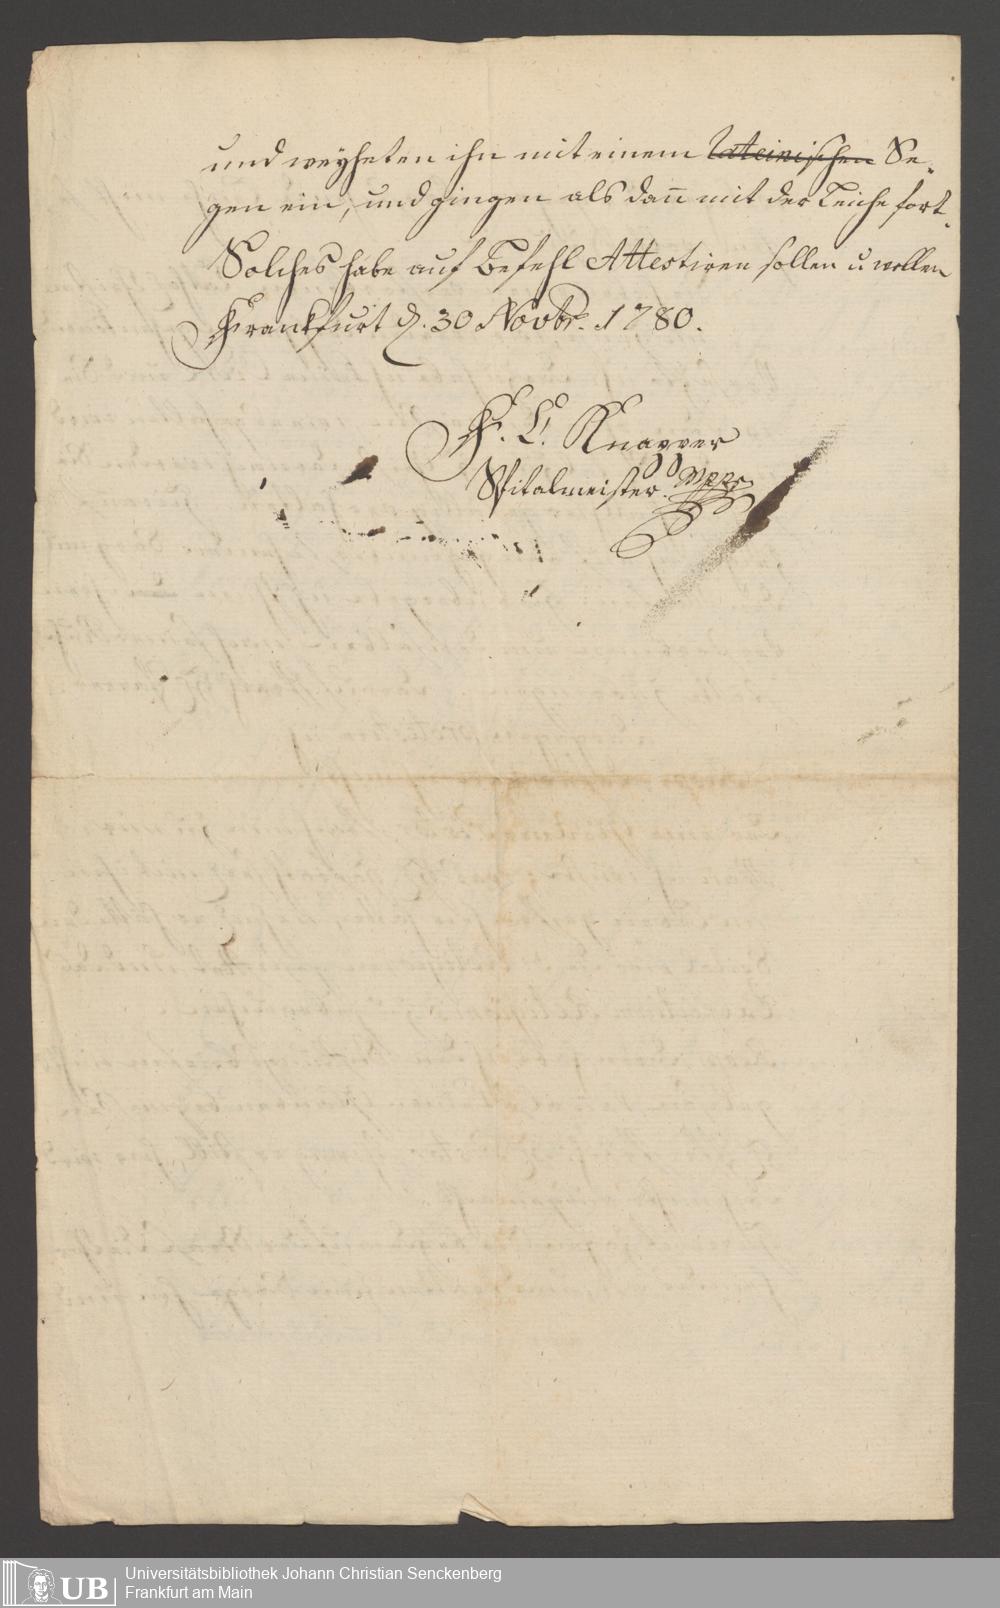 und weyheten ihn mit einem lateinischen Se-
gen ein, und gingen als dan̄ mit der Leiche fort.
Solches habe auf Befehl Attestiren sollen u wollen
Frankfurt d. 30 Novbr. 1780.
F. L. Knapper
Spitalmeister. Mppr
UB Universitätsbibliothek Johann Christian Senckenberg
Frankfurt am Main